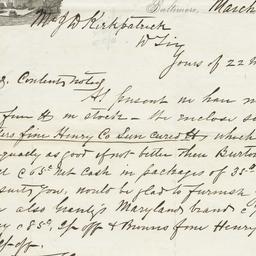 Baltimore, March
Mr J D Kirkpatrick
Dr Sir
Yours of 22
Contents noted
At present we have
fine H in stock - We enclose
fine Henry Co Sun cured H which
equally as good if not better than Burton
c 65c Net cash in packages of 35
suits you, would be glad to furnish
also Gravely's Maryland brand c
c 85c, 2/- off & Munns fine Henry
2/- off